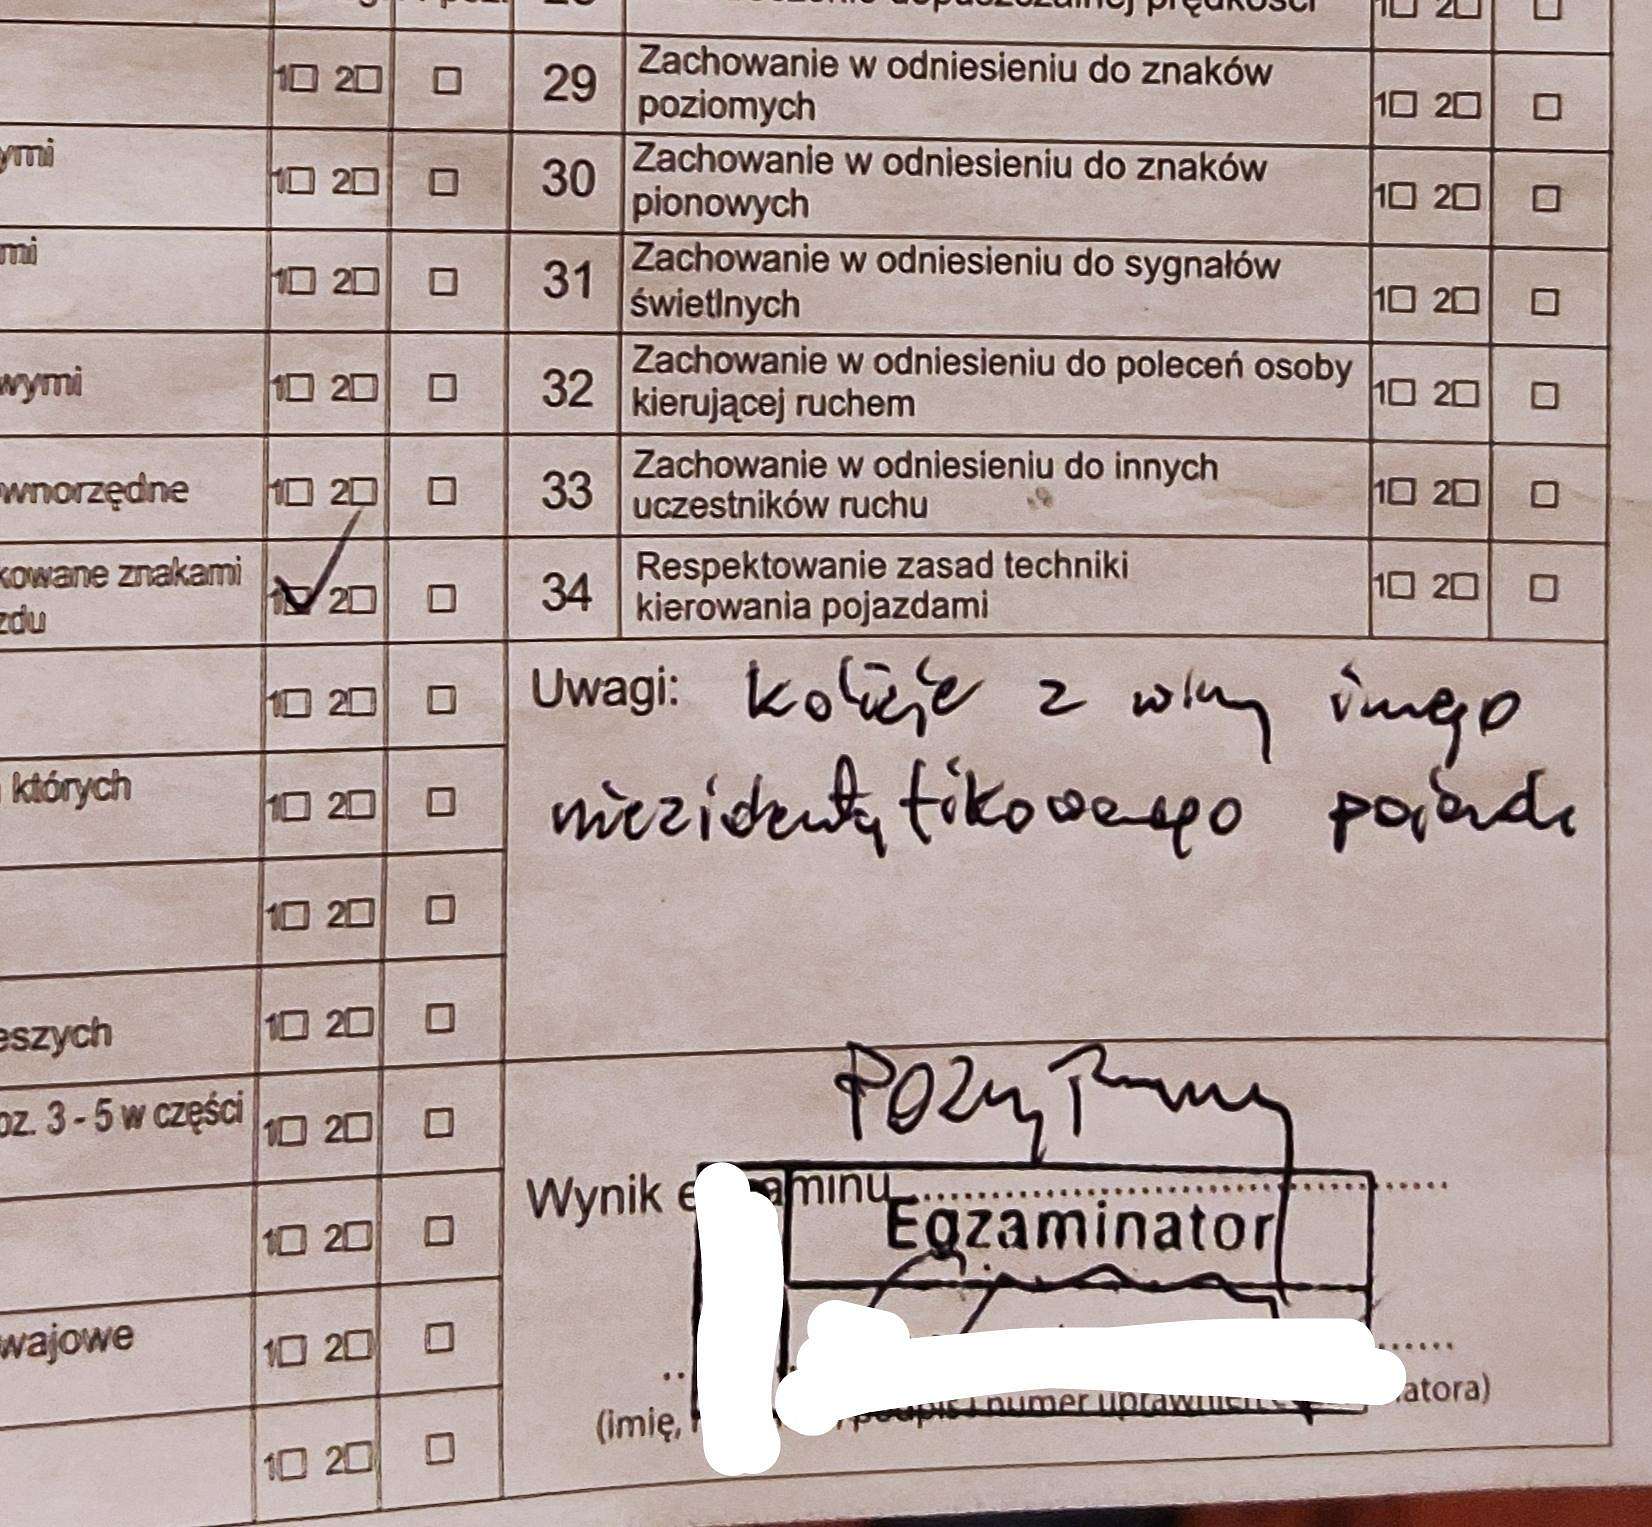 dopuszczalnej prędkości 1☐ 2☐ ☐
1☐ 2☐ ☐ 29 Zachowanie w odniesieniu do znaków
poziomych 1☐ 2☐ ☐
ymi 1☐ 2☐ ☐ 30 Zachowanie w odniesieniu do znaków
pionowych 1☐ 2☐ ☐
mi 1☐ 2☐ ☐ 31 Zachowanie w odniesieniu do sygnałów
świetlnych 1☐ 2☐ ☐
wymi 1☐ 2☐ ☐ 32 Zachowanie w odniesieniu do poleceń osoby
kierującej ruchem 1☐ 2☐ ☐
wnorzędne 1☐ 2☐ ☐ 33 Zachowanie w odniesieniu do innych
uczestników ruchu 1☐ 2☐ ☐
kowane znakami
zdu 1☑ 2☐ ☐ 34 Respektowanie zasad techniki
kierowania pojazdami 1☐ 2☐ ☐
1☐ 2☐ ☐ Uwagi: kolizja z winy innego
których 1☐ 2☐ ☐ niezidentyfikowanego pojazdu
1☐ 2☐ ☐
eszych 1☐ 2☐ ☐
oz. 3 - 5 w części 1☐ 2☐ ☐ Pozytywny
1☐ 2☐ ☐ Wynik e aminu
Egzaminator
wajowe 1☐ 2☐ ☐
(imię, podpis i numer uprawnień atora)
1☐ 2☐ ☐